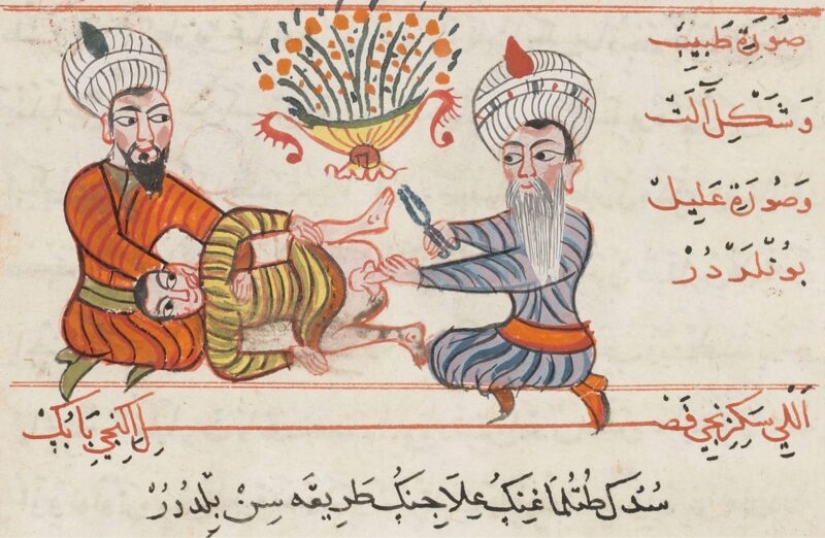 صُورَةِ طَبِيبْ
وَشَكْلِ آلَتْ
وَصُورَةِ عَلِيلْ
بُونْلَرْدُرْ
اَللِّي سَكِزِنْجِي فَصْـ ـلِ اِكِنْجِي بَابُكْ
سُدُكْ طُتُلْمَاغِنُكْ عِلَاجِنُكْ طَرِيقَه سِنْ بِلْدُرُرْ